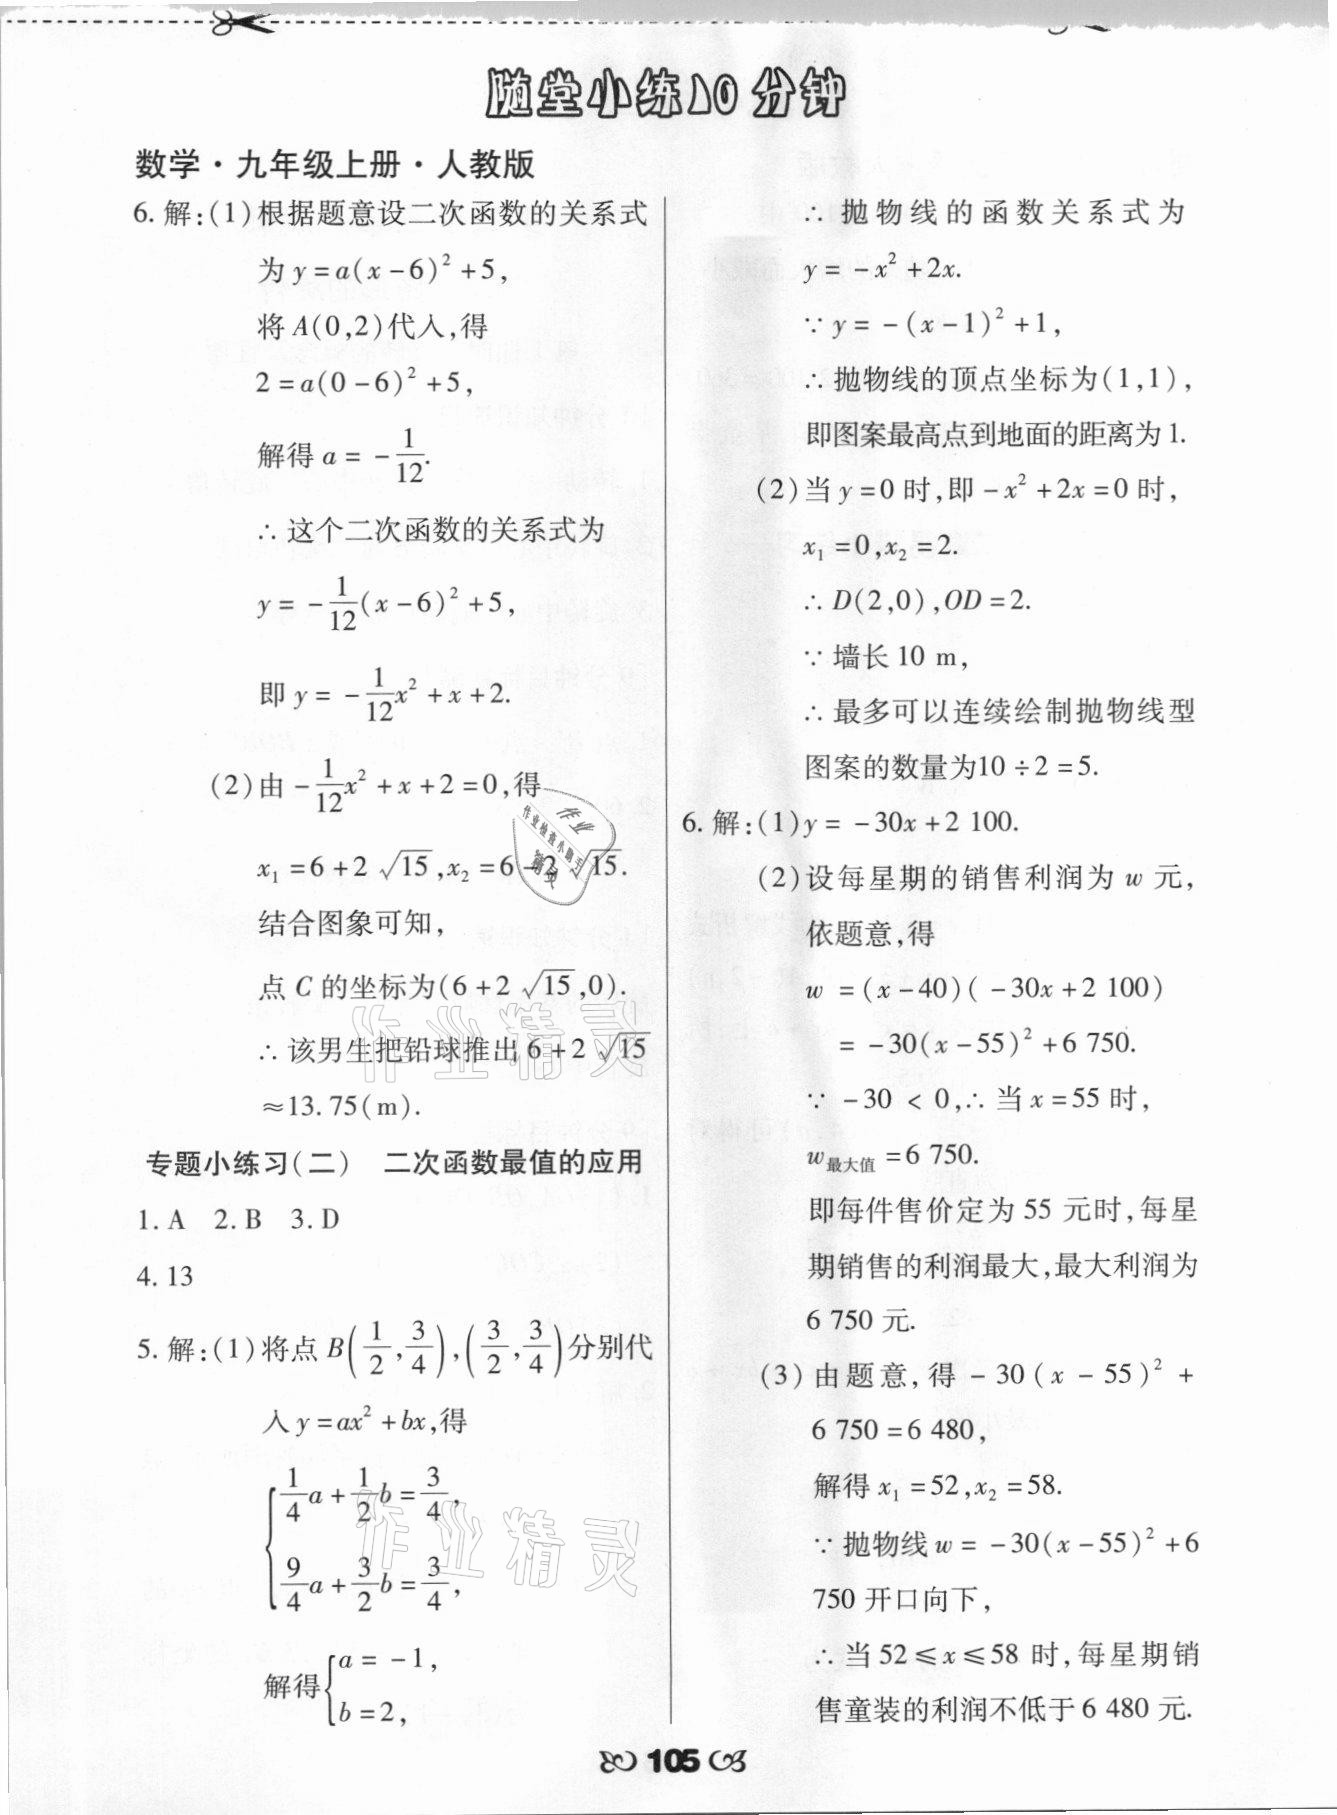 随堂小练10分钟
数学·九年级上册·人教版
6. 解:(1)根据题意设二次函数的关系式
为 y=a(x-6)²+5,
将 A(0,2)代入,得
2=a(0-6)²+5,
解得 a=-1/12.
∴ 这个二次函数的关系式为
y=-1/12(x-6)²+5,
即 y=-1/12x²+x+2.
(2)由-1/12x²+x+2=0,得
x₁=6+2√15,x₂=6-2√15.
结合图象可知,
点 C 的坐标为(6+2√15,0).
∴ 该男生把铅球推出 6+2√15
≈13.75(m).
专题小练习(二) 二次函数最值的应用
1. A 2. B 3. D
4. 13
5. 解:(1)将点 B(1/2,3/4),(3/2,3/4)分别代
入 y=ax²+bx,得
{1/4a+1/2b=3/4,
9/4a+3/2b=3/4,
解得{a=-1,
b=2,
∴ 抛物线的函数关系式为
y=-x²+2x.
∵ y=-(x-1)²+1,
∴ 抛物线的顶点坐标为(1,1),
即图案最高点到地面的距离为 1.
(2)当 y=0 时,即-x²+2x=0 时,
x₁=0,x₂=2.
∴ D(2,0),OD=2.
∵ 墙长 10 m,
∴ 最多可以连续绘制抛物线型
图案的数量为10÷2=5.
6. 解:(1)y=-30x+2 100.
(2)设每星期的销售利润为 w 元,
依题意,得
w =(x-40)(-30x+2 100)
=-30(x-55)²+6 750.
∵ -30 < 0,∴ 当 x=55 时,
w最大值=6 750.
即每件售价定为 55 元时,每星
期销售的利润最大,最大利润为
6 750 元.
(3)由题意,得-30(x-55)²+
6 750=6 480,
解得 x₁=52,x₂=58.
∵ 抛物线 w=-30(x-55)²+6
750 开口向下,
∴ 当 52≤x≤58 时,每星期销
售童装的利润不低于 6 480 元.
作业
作业检查小助手
精灵
作业精灵
作业精灵
105